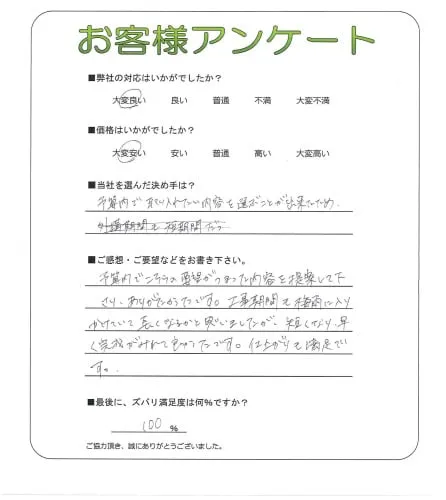 お客様アンケート
■弊社の対応はいかがでしたか？
大変良い 良い 普通 不満 大変不満
■価格はいかがでしたか？
大変安い 安い 普通 高い 大変高い
■当社を選んだ決め手は？
予算内で取り入れたい内容を選ぶことが出来たため。
■ご感想・ご要望などをお書き下さい。
予算内でこちらの要望がつまった内容を提案して下
さり、ありがたかったです。工事期間も梅雨に入り
かけていて長くなるかと思いましたが、短くなり、早
く完成がみれて良かったです。仕上がりも満足で
す。
■最後に、ズバリ満足度は何％ですか？
100 ％
ご協力頂き、誠にありがとうございました。